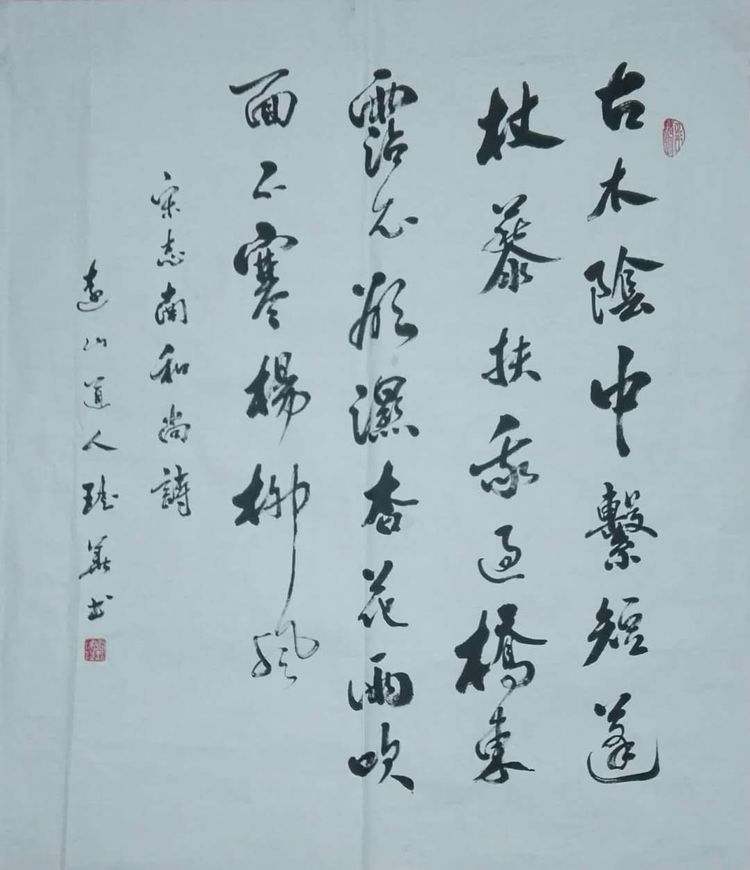 古木陰中繫短蓬
杖藜扶我過橋東
霑衣欲濕杏花雨吹
面不寒楊柳風
宋志南和尚詩
遠山道人華書